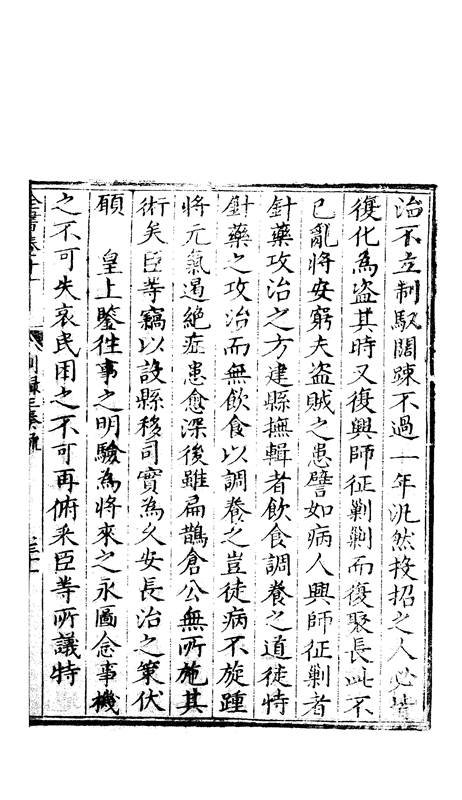 治不立制馭闊疎不過一年汎然投招之人必皆
復化為盗其時又復興師征剿剿而復聚長此不
已亂將安窮夫盗賊之患譬如病人興師征剿者
針藥攻治之方建縣撫輯者飲食調養之道徒恃
針藥之攻治而無飲食以調養之豈徒病不旋踵
將元氣遏絕症患愈深後雖扁鵲倉公無所施其
術矣臣等竊以設縣移司實為久安長治之策伏
願　皇上鑒徃事之明驗為將來之永圖念事機
之不可失哀民困之不可再俯采臣等所議特